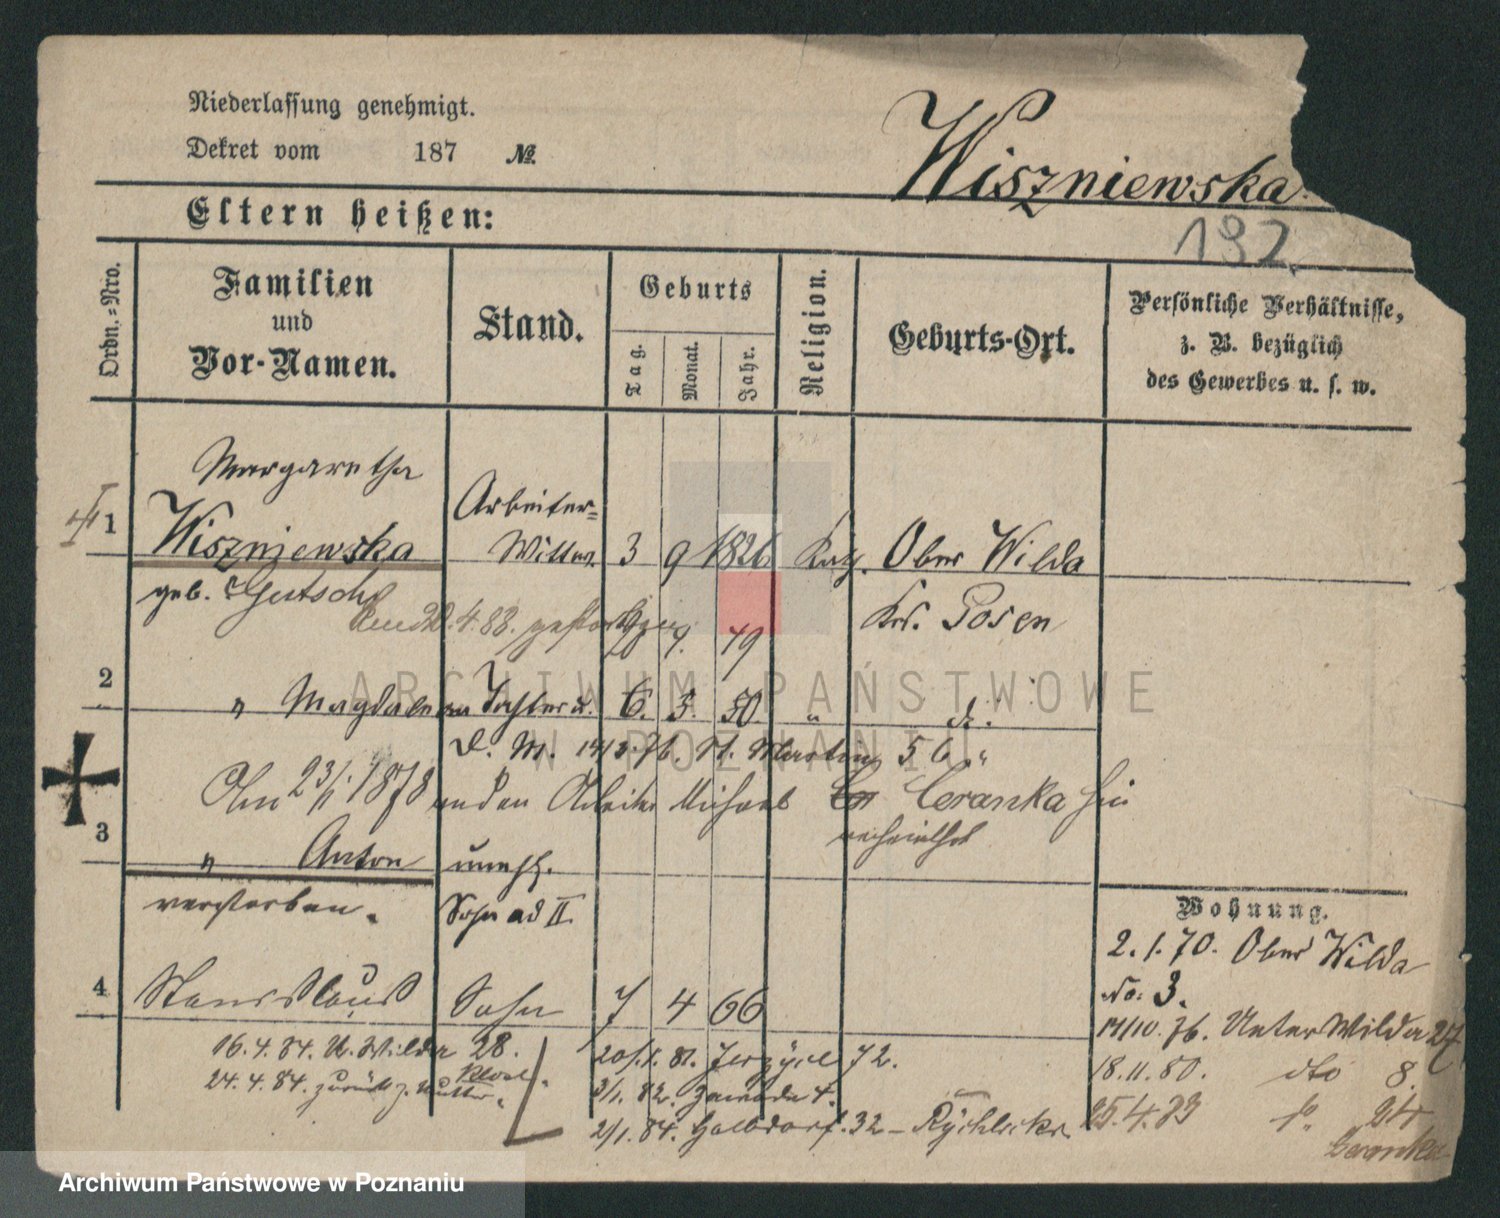 Niederlassung genehmigt.
Dekret vom 187 №
Wiszniewska
192.
Eltern heißen:
Ordn.-Nro.
Familien
und
Vor-Namen.
Stand.
Geburts
Tag.
Monat.
Jahr.
Religion.
Geburts-Ort.
Persönliche Verhältnisse,
z. B. bezüglich
des Gewerbes u. s. w.
Margaretha
1 Wiszniewska
Arbeiter-
Wittwe. 3 9 1826 Kath. Ober Wilda
geb. Gutsch
Krs. Posen
20.4.88. gestorben
9. 79
2 " Magdalena Tochter 6. 5. 50. " do.
St. Martin 56.
Am 23/1. 1878 an den Arbeiter Michael Ceranka
verheirathet
3 " Anton unehl.
verstorben. Sohn ad II.
Wohnung.
2.1.70. Ober Wilda
No: 3.
4 Stanislaus Sohn 7 4 66
14/10.76. Unter Wilda 27
16.4.84. U. Wilda 28.
20/1.81. Jerzyce 72.
18.11.80. dto 8.
24.4.84. zurück z. Mutter.
3/1. 82. Zawade 4.
2/1. 84. 32 - Rychlicki
25.4.83 24
Ceranka
ARCHIWUM PAŃSTWOWE
W POZNANIU
Archiwum Państwowe w Poznaniu